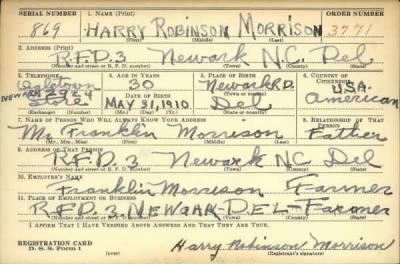 SERIAL NUMBER 1. NAME (Print) ORDER NUMBER
869 HARRY ROBINSON MORRISON 3771
(First) (Middle) (Last)
2. ADDRESS (Print)
R.F.D. 3 Newark N.C. Del
(Number and street or R. F. D. number) (Town) (County) (State)
3. TELEPHONE 4. AGE IN YEARS 5. PLACE OF BIRTH 6. COUNTRY OF CITIZENSHIP
30 Newark R.D. U.S.A.
NEWARK DATE OF BIRTH
Store MAY 31, 1910 Del American
(Exchange) (Number) (Mo.) (Day) (Yr.) (State or country)
7. NAME OF PERSON WHO WILL ALWAYS KNOW YOUR ADDRESS 8. RELATIONSHIP OF THAT PERSON
Mr Franklin Morrison Father
(Mr., Mrs., Miss) (First) (Middle) (Last)
9. ADDRESS OF THAT PERSON
R.F.D. 3 Newark NC Del
(Number and street or R. F. D. number) (Town) (County) (State)
10. EMPLOYER'S NAME
Franklin Morrison Farmer
11. PLACE OF EMPLOYMENT OR BUSINESS
R.F.D. 3 NEWARK-DEL-Farmer
(Number and street or R. F. D. number) (Town) (County) (State)
I AFFIRM THAT I HAVE VERIFIED ABOVE ANSWERS AND THAT THEY ARE TRUE.
REGISTRATION CARD
D. S. S. Form 1 (over) Harry Robinson Morrison
(Registrant's signature)